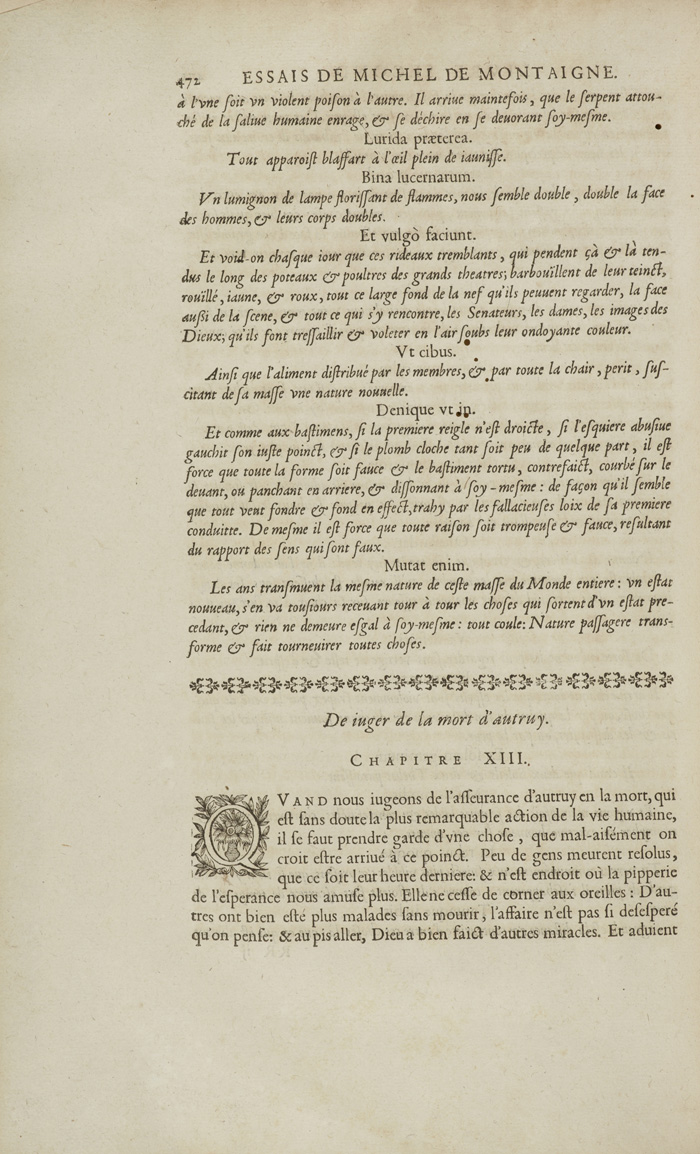 472 ESSAIS DE MICHEL DE MONTAIGNE.
à l'vne ſoit vn violent poiſon à l'autre. Il arriue maintefois, que le ſerpent attou-
ché de la ſaliue humaine enrage, & ſe déchire en ſe deuorant ſoy-meſme.
Lurida præterea.
Tout apparoiſt blaffart à l'œil plein de iauniſſe.
Bina lucernarum.
Vn lumignon de lampe floriſſant de flammes, nous ſemble double, double la face
des hommes, & leurs corps doubles.
Et vulgò faciunt.
Et void-on chaſque iour que ces rideaux tremblants, qui pendent çà & là ten-
dus le long des poteaux & poultres des grands theatres; barbouïllent de leur teinct,
rouïllé, iaune, & roux, tout ce large fond de la nef qu'ils peuuent regarder, la face
außi de la ſcene, & tout ce qui s'y rencontre, les Senateurs, les dames, les images des
Dieux; qu'ils font treſſaillir & voleter en l'air ſoubs leur ondoyante couleur.
Vt cibus.
Ainſi que l'aliment diſtribué par les membres, & par toute la chair, perit, ſuſ-
citant de ſa maſſe vne nature nouuelle.
Denique vt in.
Et comme aux baſtimens, ſi la premiere reigle n'eſt droicte, ſi l'eſquiere abuſiue
gauchit ſon iuſte poinct, & ſi le plomb cloche tant ſoit peu de quelque part, il eſt
force que toute la forme ſoit fauce & le baſtiment tortu, contrefaict, courbé ſur le
deuant, ou panchant en arriere, & diſſonnant à ſoy-meſme: de façon qu'il ſemble
que tout veut fondre & fond en effect, trahy par les fallacieuſes loix de ſa premiere
conduitte. De meſme il eſt force que toute raiſon ſoit trompeuſe & fauce, reſultant
du rapport des ſens qui ſont faux.
Mutat enim.
Les ans tranſmuent la meſme nature de ceſte maſſe du Monde entiere: vn eſtat
nouueau, s'en va touſiours receuant tour à tour les choſes qui ſortent d'vn eſtat pre-
cedant, & rien ne demeure eſgal à ſoy-meſme: tout coule: Nature paſſagere trans-
forme & fait tourneuirer toutes choſes.
De iuger de la mort d'autruy.
CHAPITRE XIII.
QVAND nous iugeons de l'aſſeurance d'autruy en la mort, qui
eſt ſans doute la plus remarquable action de la vie humaine,
il ſe faut prendre garde d'vne choſe, que mal-aiſément on
croit eſtre arriué à ce poinct. Peu de gens meurent reſolus,
que ce ſoit leur heure derniere: & n'eſt endroit où la pipperie
de l'eſperance nous amuſe plus. Elle ne ceſſe de corner aux oreilles: D'au-
tres ont bien eſté plus malades ſans mourir, l'affaire n'eſt pas ſi deſeſperé
qu'on penſe: & au pis aller, Dieu a bien faict d'autres miracles. Et aduient